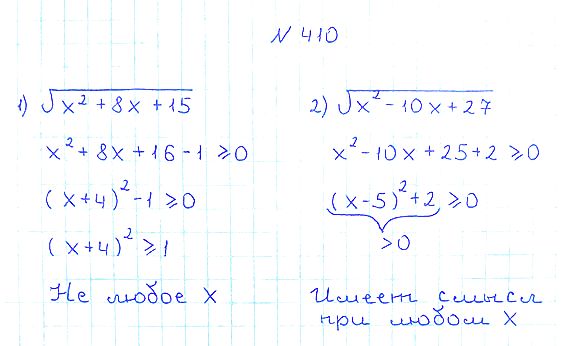 N 410
1) √x² + 8x + 15
x² + 8x + 16 - 1 ⩾ 0
(x+4)² - 1 ⩾ 0
(x+4)² ⩾ 1
Не любое x
2) √x² - 10x + 27
x² - 10x + 25 + 2 ⩾ 0
(x-5)² + 2 ⩾ 0
>0
Имеет смысл
при любом x